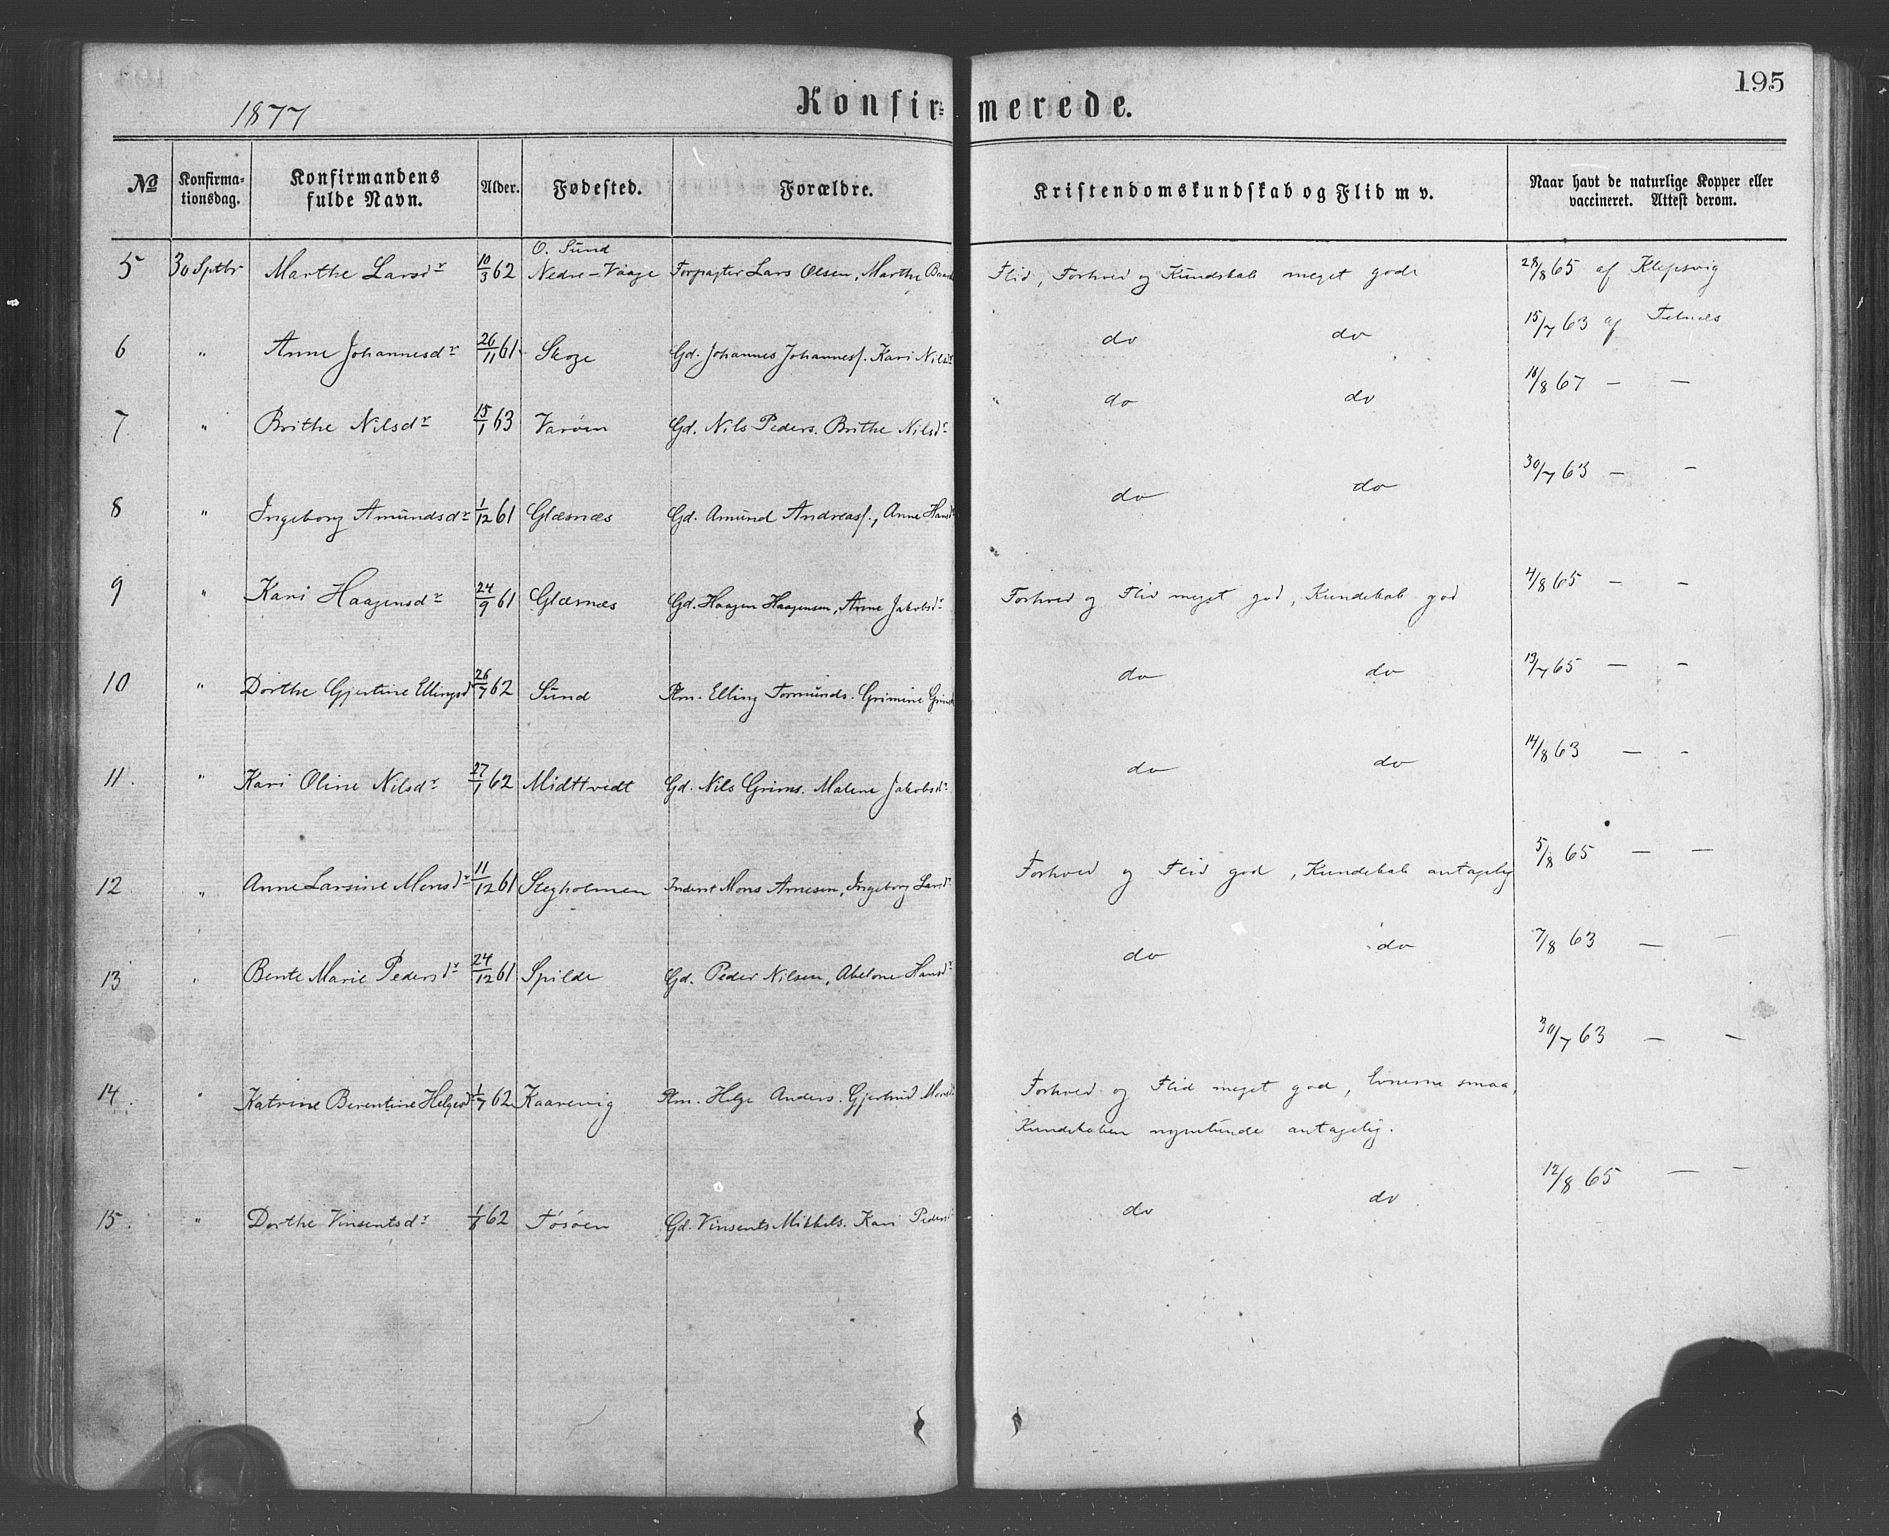 195
1877
Konfir- merede.
No Konfirma-tionsdag. Konfirmandens fulde Navn. Alder. Fødested. Forældre. Kristendomskundskab og Flid m v. Naar havt de naturlige Kopper eller vaccineret. Attest derom.
5 30 Sptbr Marthe Larsdr 10/3 62 O. Sund Nedre-Vaage Forpagter Lars Olsen, Marthe Flid, Forhold og Kundskab meget godt 28/8 65 af Klepsvig
6 " Anne Johannesdr 26/11 61 Skoge Gd. Johannes Johannesf. Kari Nilsd do do 15/7 63 af Telnæs
7 " Brithe Nilsdr 15/1 63 Varøen Gd. Nils Peders. Brithe Nilsdr do do /8 67 — —
8 " Ingeborg Amundsdr 1/12 61 Glæsnæs Gd. Amund Andreasf., Anne Hansd do do 30/7 63 — —
9 " Kari Haagensdr 24/9 61 Glæsnæs Gd. Haagen Haagensen, Anne Jakobsdr Forhold og Flid meget god, Kundskab god 4/8 65 — —
10 " Dorthe Gjertine Ellingsdr 26/7 62 Sund Plm. Elling Tormunds. Grimine do do 13/7 65 — —
11. " Kari Oline Nilsdr 27/1 62 Midttvedt Gd. Nils Grims. Malene Jakobsdr do do 14/8 63 — —
12 " Anne Larsine Monsdr 11/12 61 Stegholmen Inderst Mons Arnesen, Ingeborg Larsdr Forhold og Flid god, Kundskab antagelig 5/8 65 — —
13 " Bente Marie Pedersdr 24/12 61 Spilde Gd. Peder Nilsen, Abelone Hansdr do do 7/8 63 — —
14. " Katrine Berentine Helgesdr 1/7 62 Kaarevig Plm. Helge Anders. Gjertrud Monsd Forhold og Flid meget god, Evnerne smaa, 30/7 63 — —
Kundskaben nymtunde antagelig.
15. " Dorthe Vinsentsdr 62 Tøsøen Gd. Vinsents Mikkels. Kari Pedersd do do 12/8 65 — —